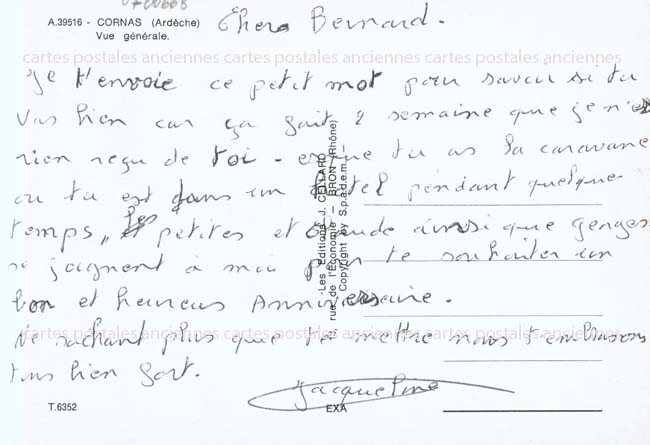 07CN668
A.39516 - CORNAS (Ardèche)
Vue générale.
Chers Bernard.
cartes postales anciennes cartes postales anciennes cartes postales anciennes
Je t'envoie ce petit mot pour savoir si tu
vas bien car ça fait 2 semaine que je n'ai
rien reçu de toi - es que tu as la caravane
ou tu est dans un hotel pendant quelque
temps, les petites et Claude ainsi que
se joignent à moi pour te souhaiter un
bon et heureus Anniversaire.
cartes postales anciennes cartes postales anciennes cartes postales anciennes
Ne sachant plus que te mettre nous t'embrassons
tous bien fort.
Jacqueline
Les Editions J. CELLARD
rue de l'Economie - BRON (Rhône)
Copyright by S.p.a.d.e.m. -
T.6352
EXA